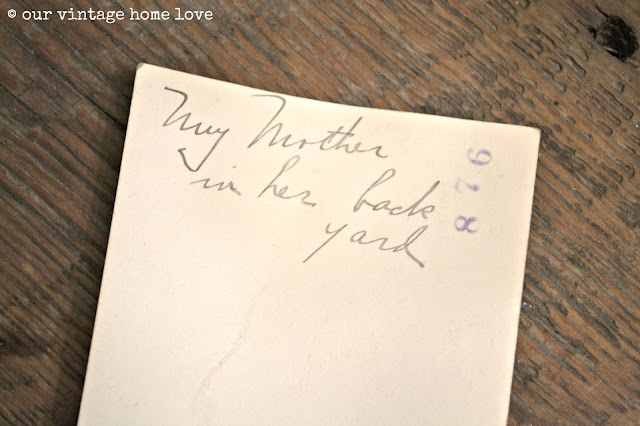 © our vintage home love
My Mother
in her back
yard
876